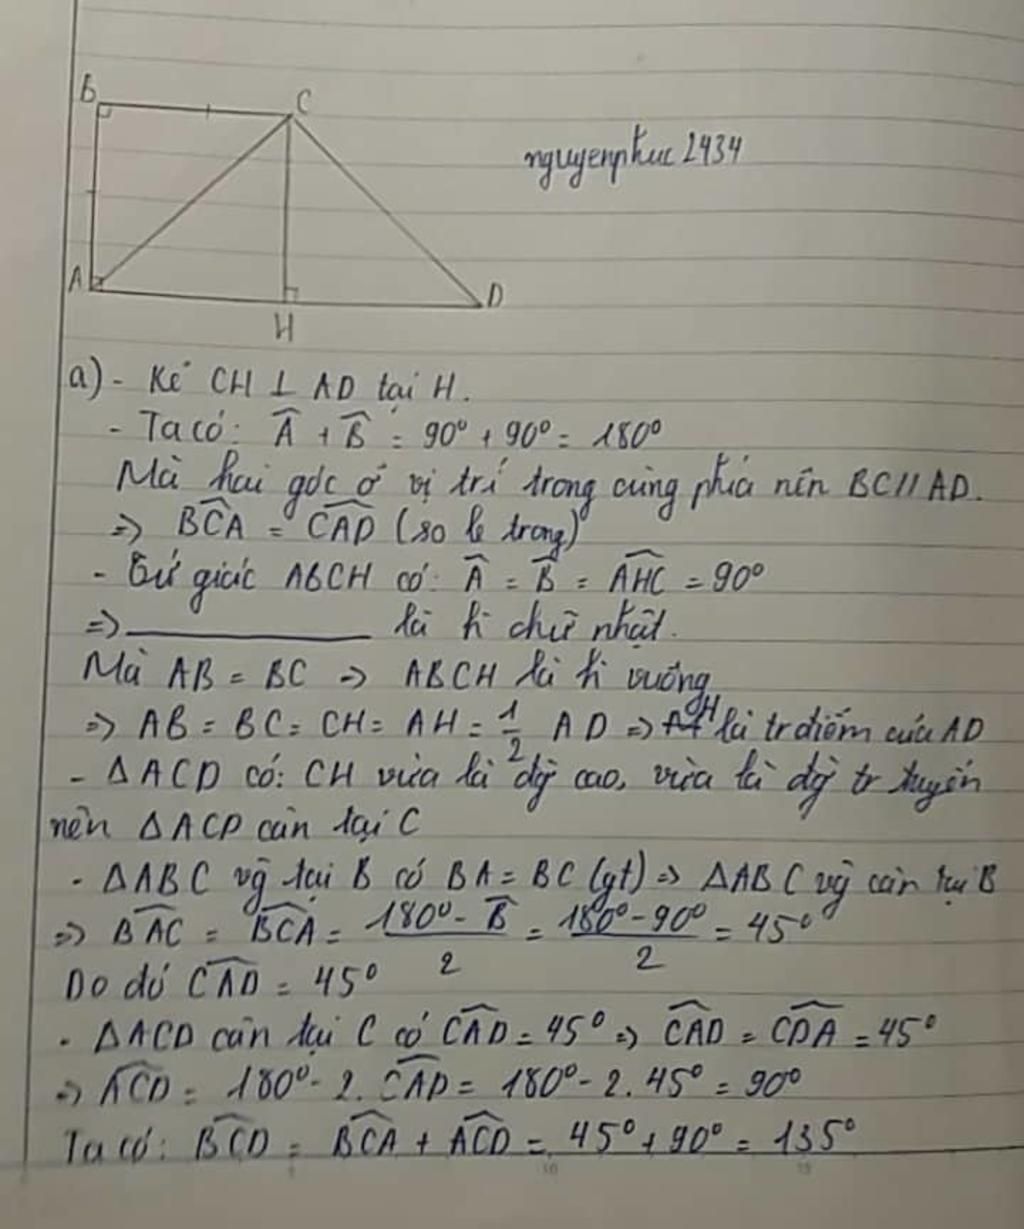 B
C
nguyenphuc2434
A
D
H
a) - Kẻ CH ⊥ AD tại H.
- Ta có: Â + B̂ = 90° + 90° = 180°
Mà hai góc ở vị trí trong cùng phía nên BC // AD.
=> \widehat{BCA} = \widehat{CAD} (so le trong)
- Tứ giác ABCH có: Â = B̂ = \widehat{AHC} = 90°
=> ________ là h chữ nhật.
Mà AB = BC => ABCH là h vuông
=> AB = BC = CH = AH = 1/2 AD => H là tr điểm của AD
- ΔACD có: CH vừa là đg cao, vừa là đg tr tuyến
nên ΔACD cân tại C
. ΔABC vg tại B có BA = BC (gt) => ΔABC vg cân tại B
=> \widehat{BAC} = \widehat{BCA} = (180° - B̂)/2 = (180° - 90°)/2 = 45°
Do đó \widehat{CAD} = 45°
. ΔACD cân tại C có \widehat{CAD} = 45° => \widehat{CAD} = \widehat{CDA} = 45°
=> \widehat{ACD} = 180° - 2. \widehat{CAD} = 180° - 2. 45° = 90°
Ta có: \widehat{BCD} = \widehat{BCA} + \widehat{ACD} = 45° + 90° = 135°